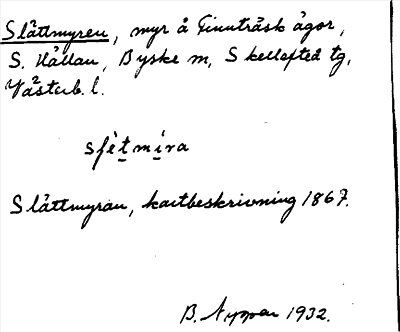 Slåttmyren, myr å Finnträsk ägor,
S. Hållan, Byske m, Skellefteå tg,
Västerb. l.
sfètmíra
Slåttmyran, kartbeskrivning 1867.
B. 1932.